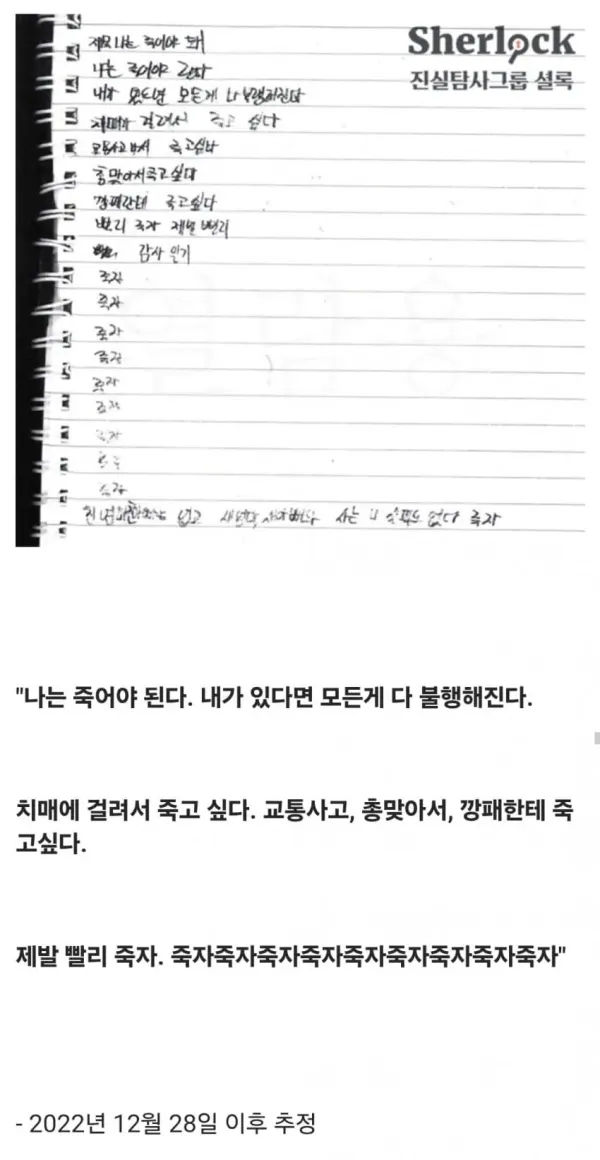 Sherlock
진실탐사그룹 셜록
나는 죽어야 돼
나는 죽어야 된다
내가 있다면 모든게 다 불행해진다
치매에 걸려서 죽고 싶다
죽고싶다
총맞아서죽고싶다
깡패한테 죽고싶다
빨리 죽자 제발 빨리
감사 일기
죽자
죽자
죽자
죽자
죽자
죽자
죽자
죽자
없고 사는 없다 죽자
"나는 죽어야 된다. 내가 있다면 모든게 다 불행해진다.
치매에 걸려서 죽고 싶다. 교통사고, 총맞아서, 깡패한테 죽
고싶다.
제발 빨리 죽자. 죽자죽자죽자죽자죽자죽자죽자죽자죽자"
- 2022년 12월 28일 이후 추정